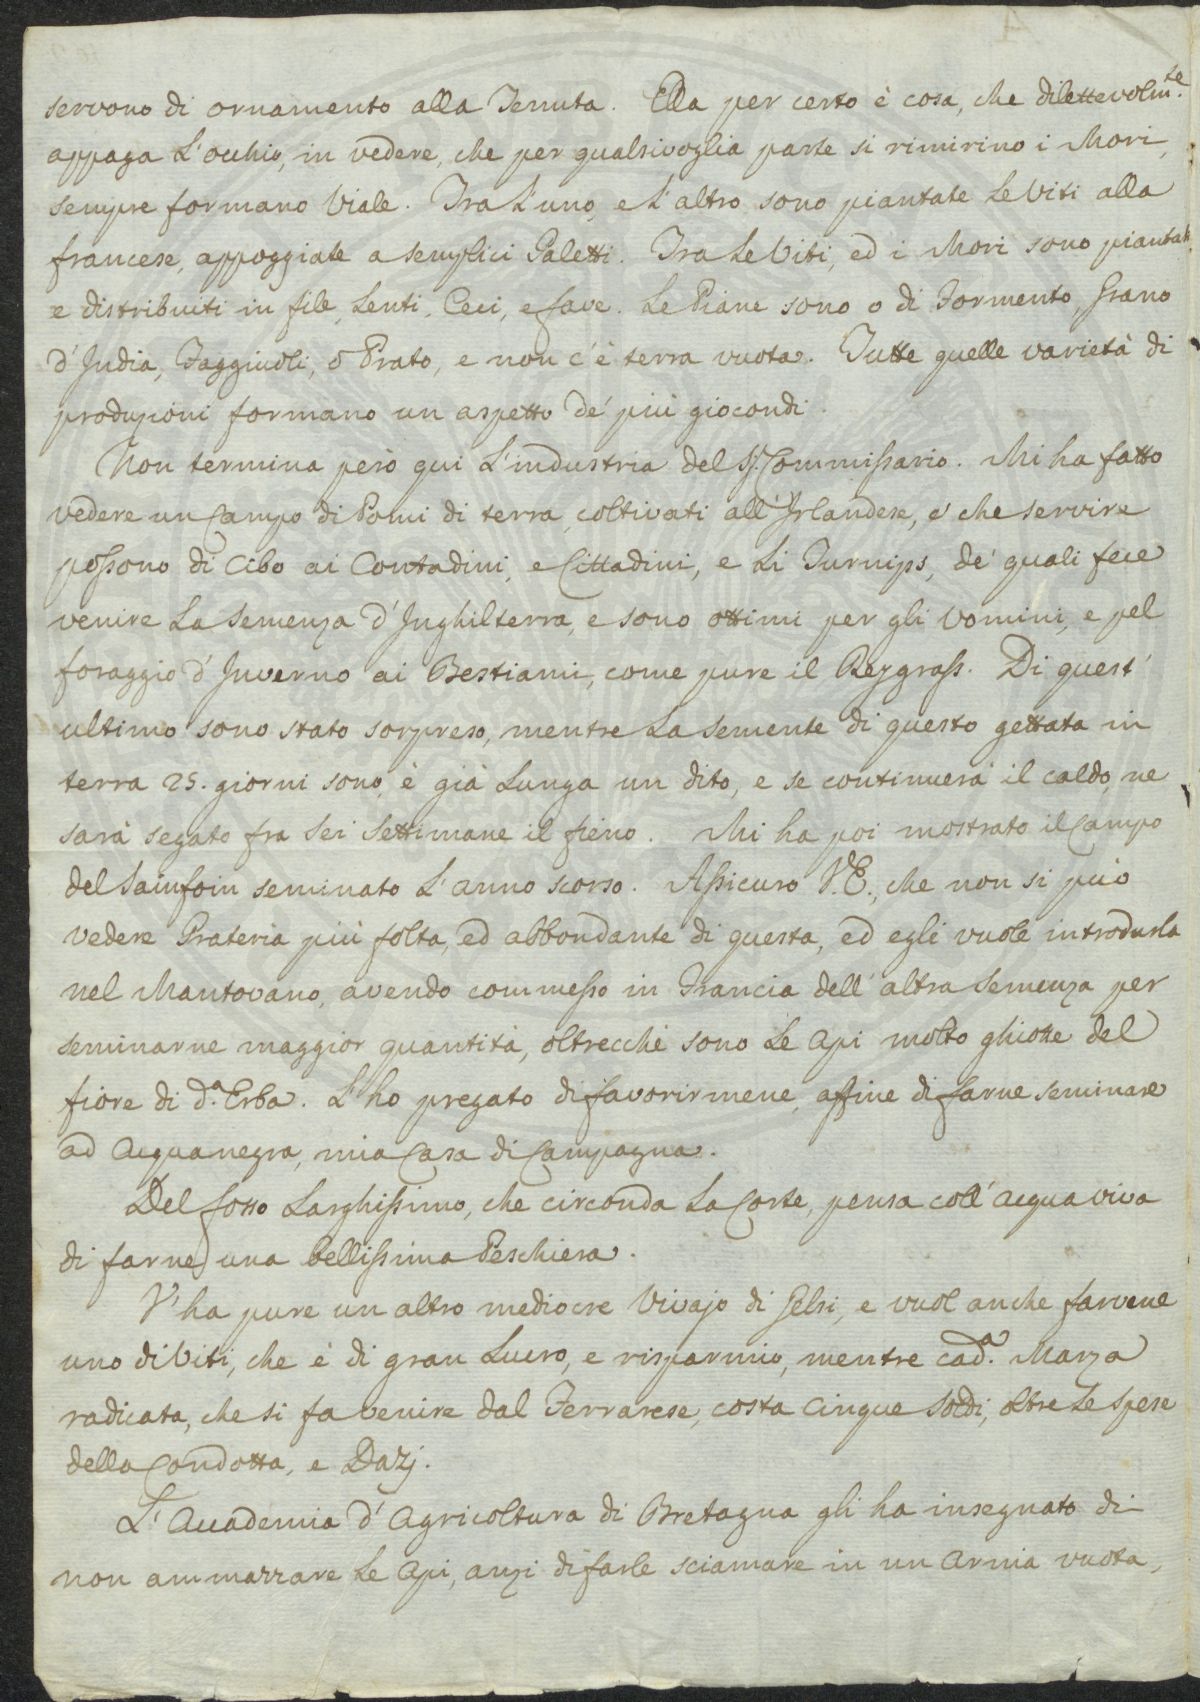 servono di ornamento alla Tenuta. Ella per certo è cosa, che dilettevolm.te
appaga L'occhio, in vedere, che per qualsivoglia parte si rimirino i Mori,
sempre formano Viale. Tra L'uno, e L'altro sono piantate Le Viti alla
francese, appoggiate a semplici Paletti. Tra Le Viti, ed i Mori sono piantati
e distribuiti in file, Lenti, Ceci, e fave. Le Piane sono o di Formento, Grano
d'India, Faggiuoli, o Prato, e non c'è terra vuota. Tutte quelle varietà di
produzioni formano un aspetto de' più giocondi.
Non termina però qui L'industria del Sj. Commissario. Mi ha fatto
vedere un Campo di Pomi di terra coltivati all'Irlandese, e che servire
possono di Cibo ai Contadini, e Cittadini, e Li Turnips, de' quali fece
venire La Semenza d'Inghilterra, e sono ottimi per gli Uomini, e pel
foraggio d'Inverno ai Bestiami, come pure il Reygrass. Di quest'
ultimo sono stato sorpreso, mentre La Semente di questo gettata in
terra 25. giorni sono, è già Lunga un dito, e se continuerà il caldo, ne
sarà segato fra Sei Settimane il fieno. Mi ha poi mostrato il Campo
del Sainfoin seminato L'anno scorso. Assicuro V.E., che non si può
vedere Prateria più folta, ed abbondante di questa, ed egli vuole introdurla
nel Mantovano, avendo commesso in Francia dell'altra Semenza per
seminarne maggior quantità, oltrecché sono Le Api molto ghiotte del
fiore di d.a Erba. L'ho pregato di favorirmene, affine di farne seminare
ad Acquanegra, mia Casa di Campagna.
Del fosso Larghissimo, che circonda La Corte, pensa coll'acqua viva
di farne una bellissima Peschiera.
V'ha pure un altro mediocre Vivajo di Gelsi, e vuol anche farvene
uno di Viti, che è di gran Lucro, e risparmio, mentre cad.a Marza
radicata, che si fa venire dal Ferrarese, costa Cinque Soldi, oltre Le spese
della Condotta, e Dazj.
L'Accademia d'Agricoltura di Bretagna gli ha insegnato di
non ammazzare Le Api, anzi di farle sciamare in un Arnia vuota,